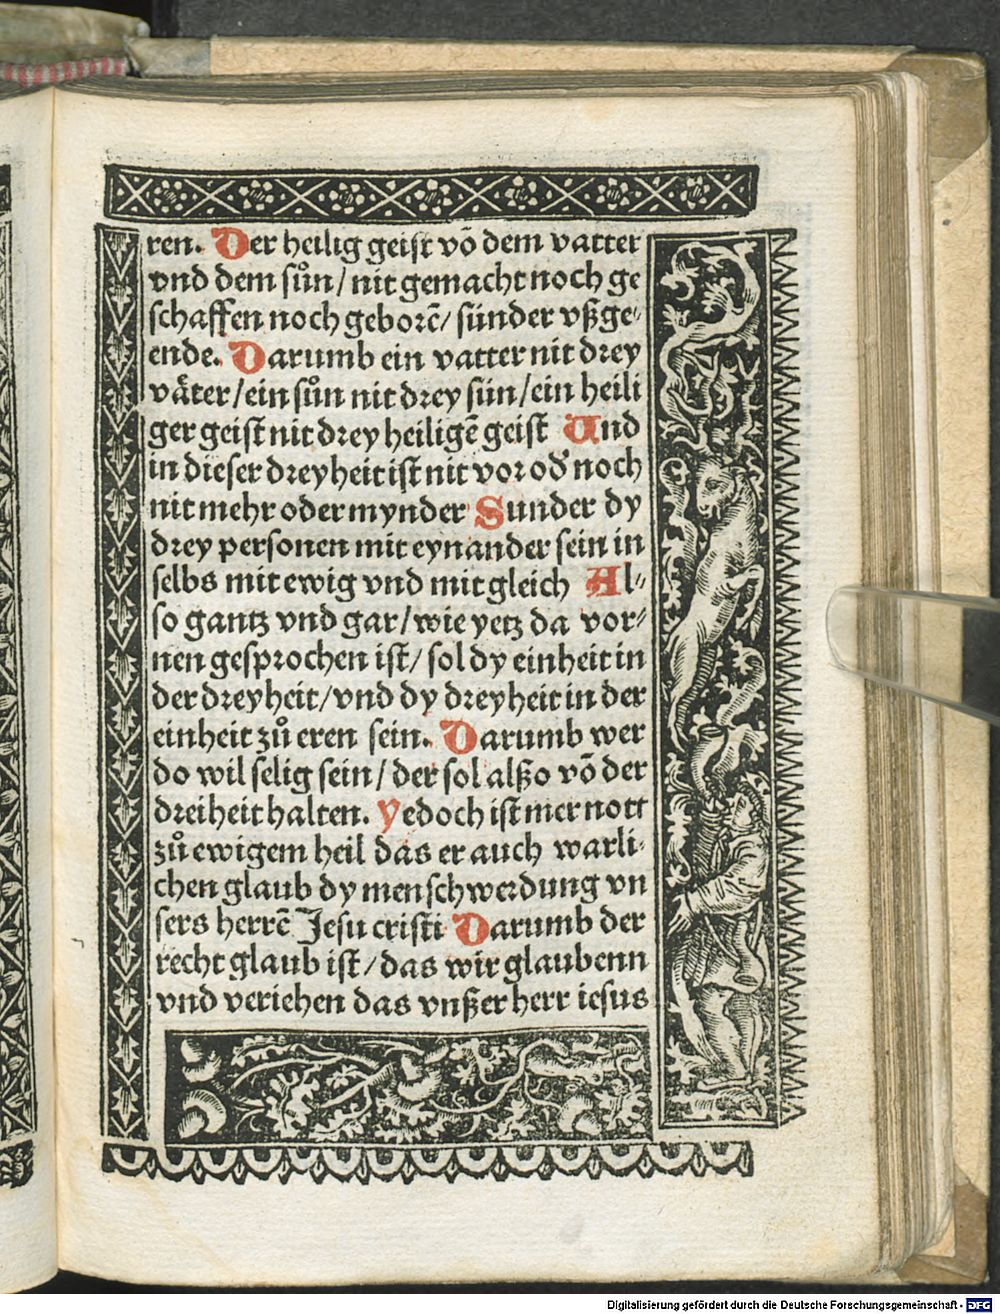 ren. Der heilig geist vō dem vatter
vnd dem sůn / nit gemacht noch ge
schaffen noch geborē / sünder vßge⸗
ende. Darumb ein vatter nit drey
våter / ein sůn nit drey sün / ein heili
ger geist nit drey heiligē geist Und
in dieser dreyheit ist nit vor oď noch
nit mehr oder mynder Sunder dy
drey personen mit eynander sein in
selbs mit ewig vnd mit gleich Al⸗
so gantz vnd gar / wie yetz da vor⸗
nen gesprochen ist / sol dy einheit in
der dreyheit / vnd dy dreyheit in der
einheit zů eren sein. Darumb wer
do wil selig sein / der sol alßo vō der
dreiheit halten. Yedoch ist mer nott
zů ewigem heil das er auch warli⸗
chen glaub dy menschwerdung vn
sers herrē Jesu cristi Darumb der
recht glaub ist / das wir glaubenn
vnd veriehen das vnßer herr iesus
Digitalisierung gefördert durch die Deutsche Forschungsgemeinschaft - DFG